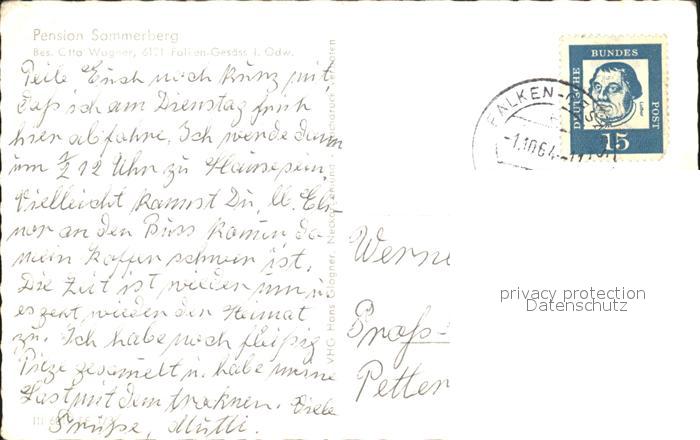 Pension Sommerberg
Bes. Otto Wagner, 6121 Falken-Gesäss i. Odw.
Teile Euch noch kurz mit,
daß ich am Dienstag früh
hier abfahre. Ich werde dann
um 1/2 12 Uhr zu Hause sein.
Vielleicht kannst Du, lb. Eli-
nor an den Buss komen da
mein Koffer schwer ist.
Die Zeit ist wieder um u.
es geht wieder der Heimat
zu. Ich habe noch fleißig
Pilze gesammelt u. habe meine
Last mit dem trocknen. Viele
Grüße, Mutti.
VHG Hans Glogner, Neckar
DEUTSCHE
BUNDES
POST
15
FALKEN-GESÄ
-1.10.64-
Werne
Groß-
Petter
privacy protection
Datenschutz